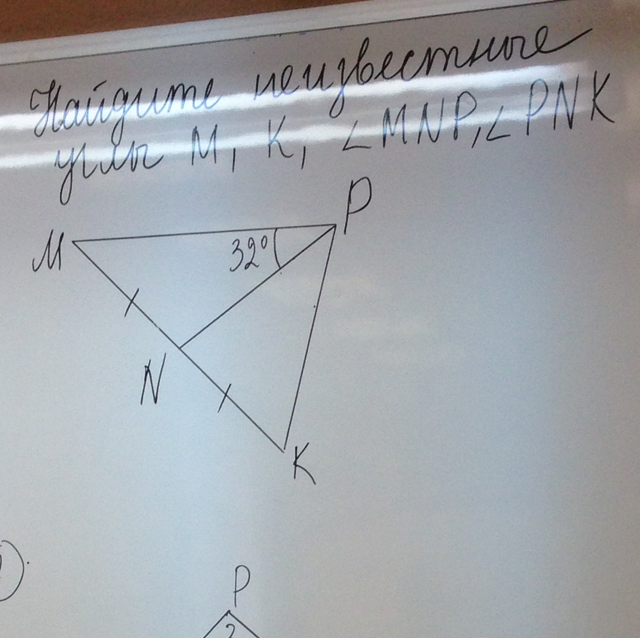 Найдите неизвестные
углы M, K, ∠MNP, ∠PNK
P
M
32°
N
K
P
2